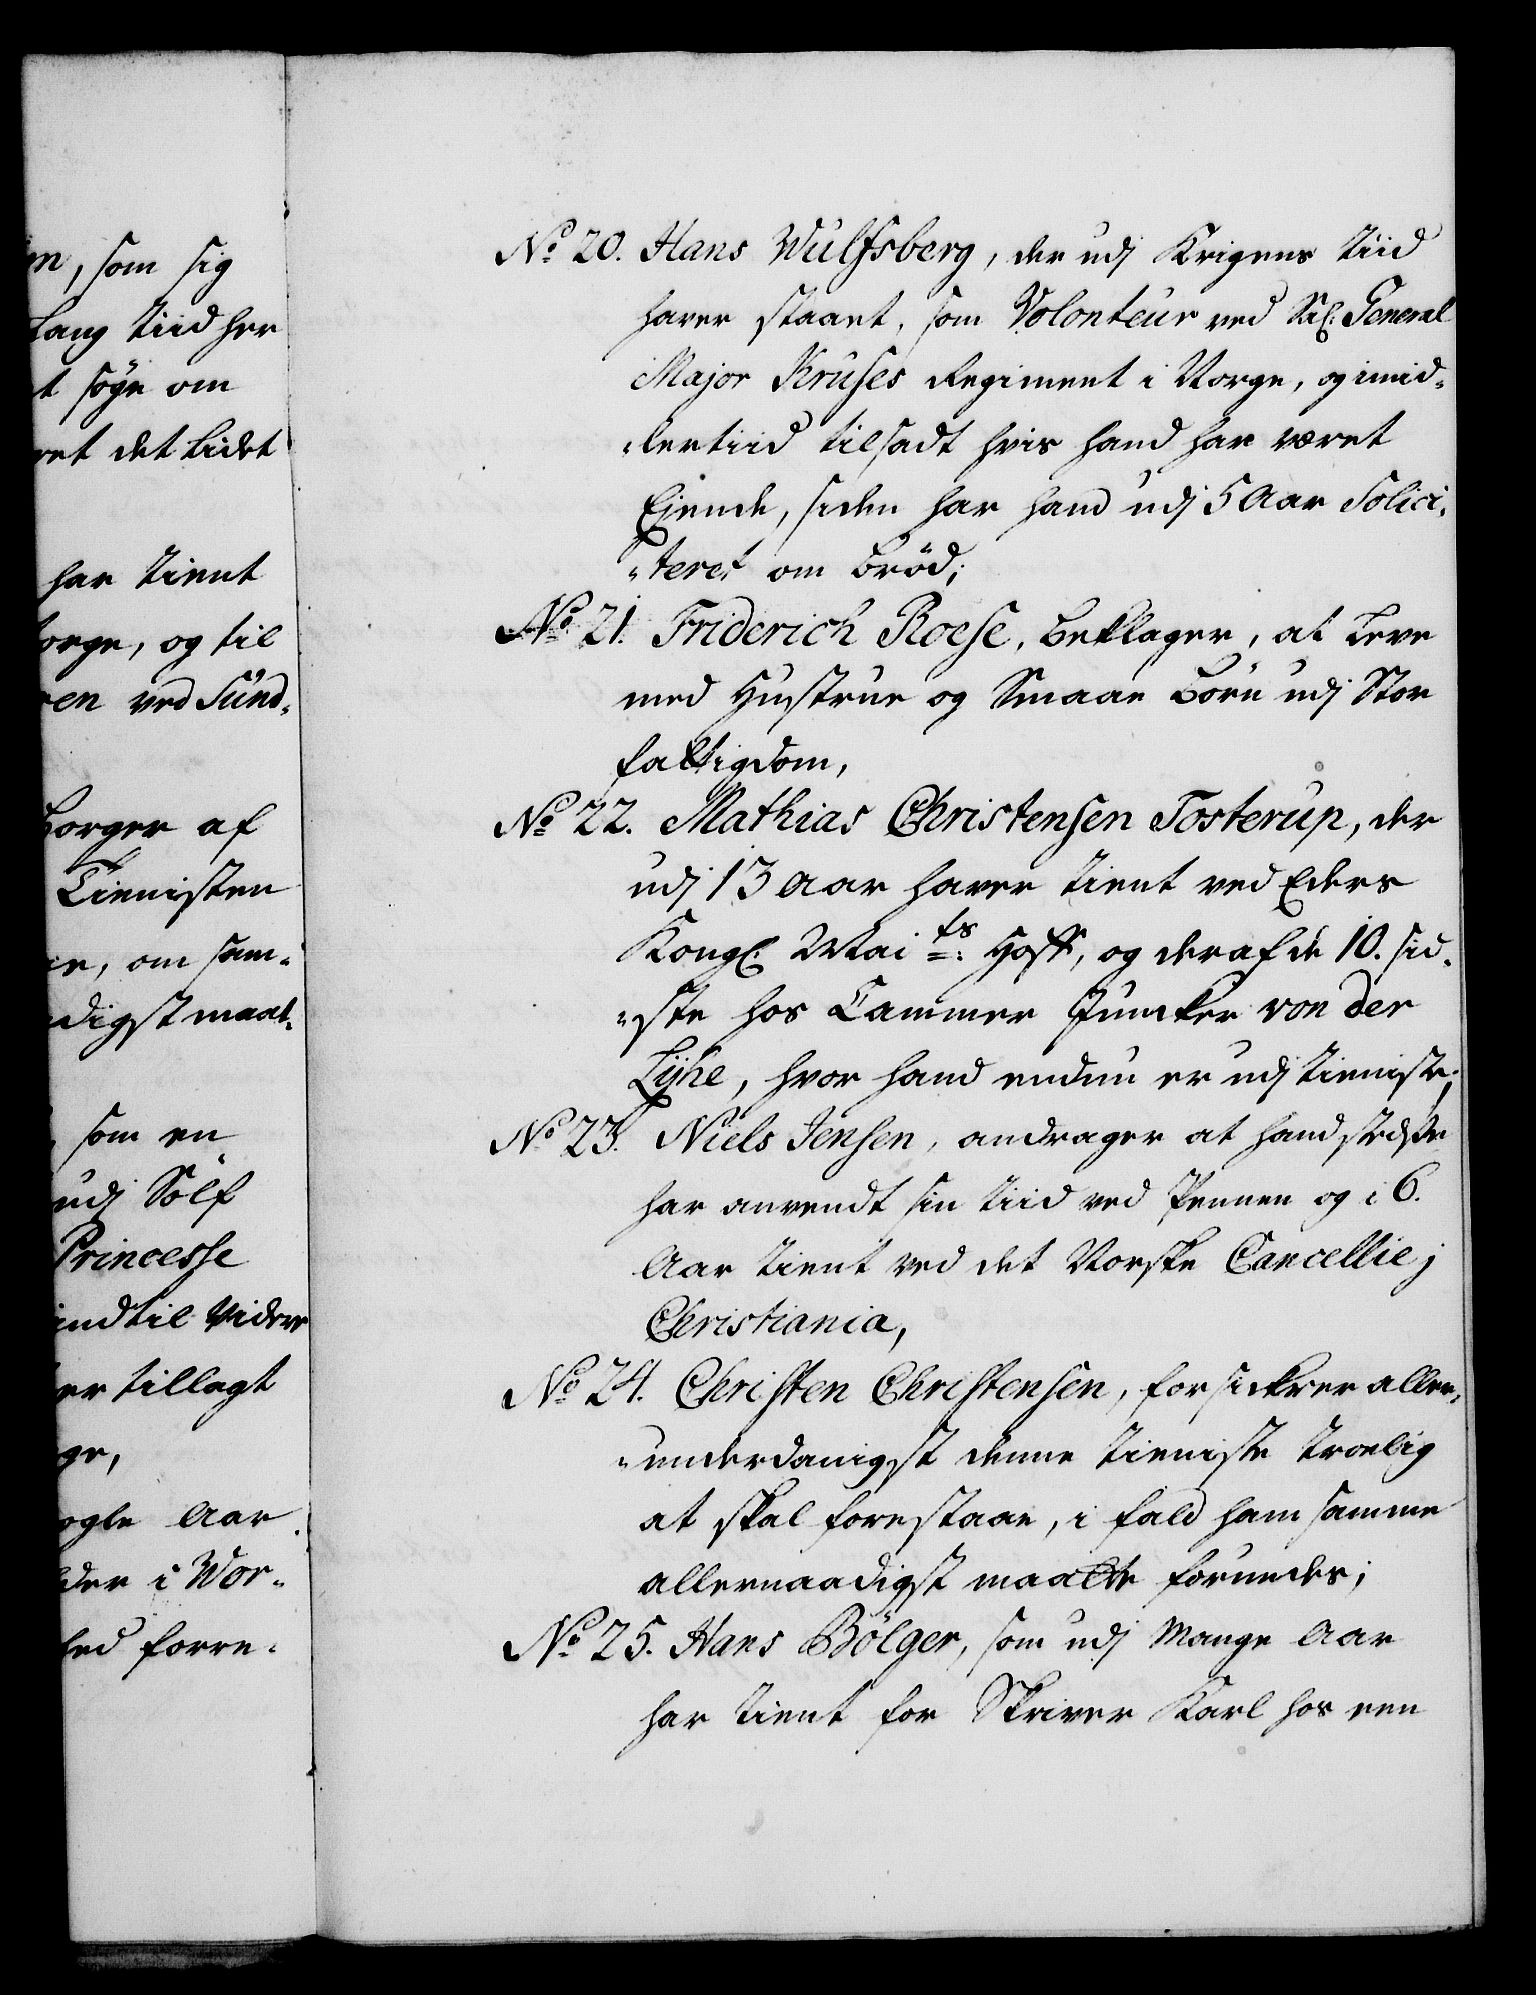 en, som sig
Lang tiid her
t søge om
ret det Lidet
har tient
orge, og til
en ved Sund-
Borger af
Tienisten
e, om sam-
digst maat-
som en
udj Sölf
Princesse
indtil Videre
er tillagt
ge,
ogle Aar
der i Nor-
led forre-
No 20. Hans Wulfsberg, der udj Krigens tiid
haver staaet, som Volonteur ved Sal: General
Major Kruses Regiment i Norge, og imid-
-lertiid tilsadt hvis hand har været
Ejende, siden har hand udj 5 Aar Solici-
-teret om Bröd;
No 21. Friderich Roese, beklager, at Leve
med Hustrue og Smaae Börn udj Stor
fattigdom,
No 22. Mathias Christensen Tosterup, der
udj 13 Aar haver tient ved Eders
Kongl: Maits: Hoff, og deraf de 10. sid-
-ste hos Cammer Juncker von der
Lÿhe, hvor hand endnu er udj tieniste;
No 23. Niels Jensen, andrager at hand stedse
har anvendt sin tiid ved Pennen og i 6.
Aar tient ved det Norske Cancellie j
Christiania,
No 24. Christen Christensen, forsickrer aller-
-underdanigst denne tieniste troelig
at skal forestaae, i fald ham samme
allernaadigst maatte forundes;
No 25. Hans Bölger, som udj Mange Aar
har tient for Skriver Karl hos een